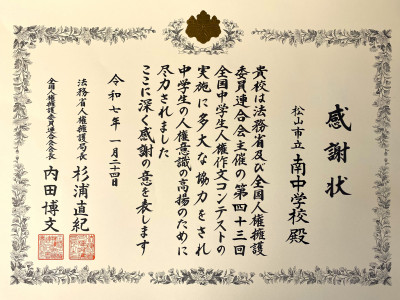 感謝状
松山市立 南中学校 殿
貴校は法務省及び全国人権擁護
委員連合会主催の第四十三回
全国中学生人権作文コンテストの
実施に多大な協力をされ
中学生の人権意識の高揚のために
尽力されました
ここに深く感謝の意を表します
令和七年 一月二十四日
法務省人権擁護局長 杉浦直紀
全国人権擁護委員連合会会長 内田博文